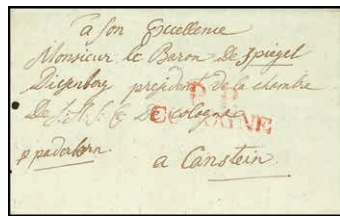 à son Excellence
Monsieur le Baron de Spiegel
président de la chambre
De S. A. S. E. De cologne
P. P.
COLOGNE
p paderborn
a Canstein.